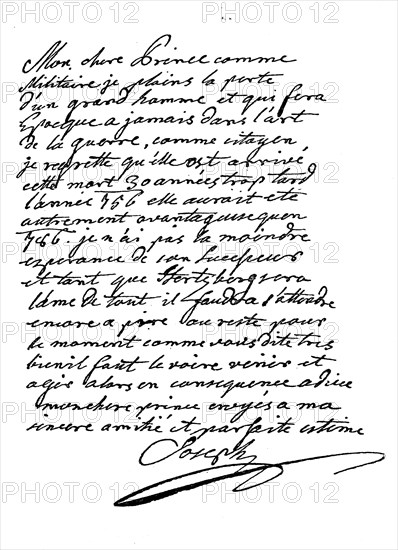 Mon chere Prince comme
Militaire je plains la perte
d'un grand homme et qui fera
Epocque a jamais dans l'art
de la guerre, comme citoyen,
je regrette qu'elle est arrivé
cette mort 30 années trop tard
l'année 756 elle auroit eté
autrement avantaguese qu'en
786. je n'ai pas la moindre
esperance de son Successeurs
et tant que Hertzberg sera
l'ame de tout il faudra s'attendre
encore a pire au reste pour
le moment comme vous dite tres
bien il faut le voire venir et
agir alors en consequence adieu
mon chere prince croyés a ma
sincere amitié et parfaite estime
Joseph
PHOTO 12